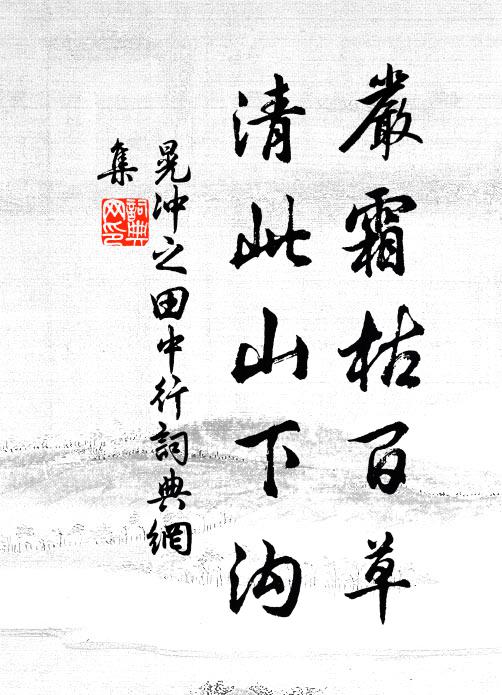 嚴霜枯百草
清此山下沟
晁沖之田中行詞典網
集
詞典
网印